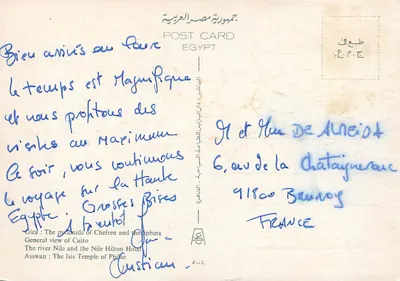 جمهورية مصر العربية
POST CARD
EGYPT
Bien arrivés au Caire
le temps est Magnifique
et nous profitons des
visites au Maximum
Ce soir, nous continuons
le voyage sur la Haute
Egypte. Grosses Bises
A bientôt
Christian
M et Mme DE ALMEIDA
6, av de la Chataigneraie
91800 Brunoy
FRANCE
Giza : The pyramids of Chefren and the Sphinx
General view of Cairo
The river Nile and the Nile Hilton Hotel
Asswan : The Isis Temple of Philae